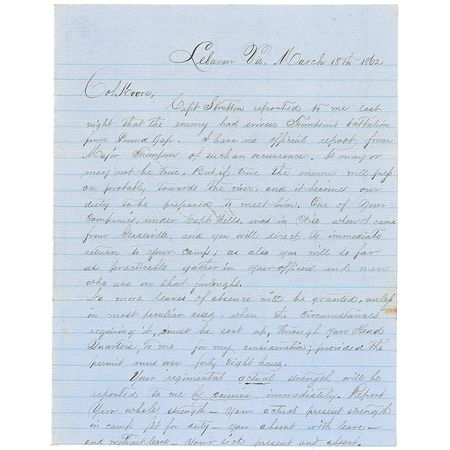 Lebanon Va. March 18th 1862
Col. Moore,
Capt Stratton reported to me last
night that the enemy had driven Thompson's battalion
from Pound Gap. I have no official report, from
Major Thompson of such an occurrence. It may or
may not be true. But if true the enemy will pass
on probably towards the river, and it becomes our
duty to be prepared to meet him. One of your
Companies, under Capt Wells, was in Ohio when I came
from Gladeville, and you will direct its immediate
return to your camp; as also you will so far
as practicable gather in your officers and men
who are on short furlought.
No more leaves of absence will be granted, unless
in most peculiar cases, when the circumstances
requiring it, must be sent up, through your Head
Quarters, to me for my consideration; provided the
permit runs over forty eight hours.
Your regimental actual strength will be
reported to me by courier immediately. Report
your whole strength — your actual present strength
in camp fit for duty — your absent with leave —
and without leave — your sick present and absent.